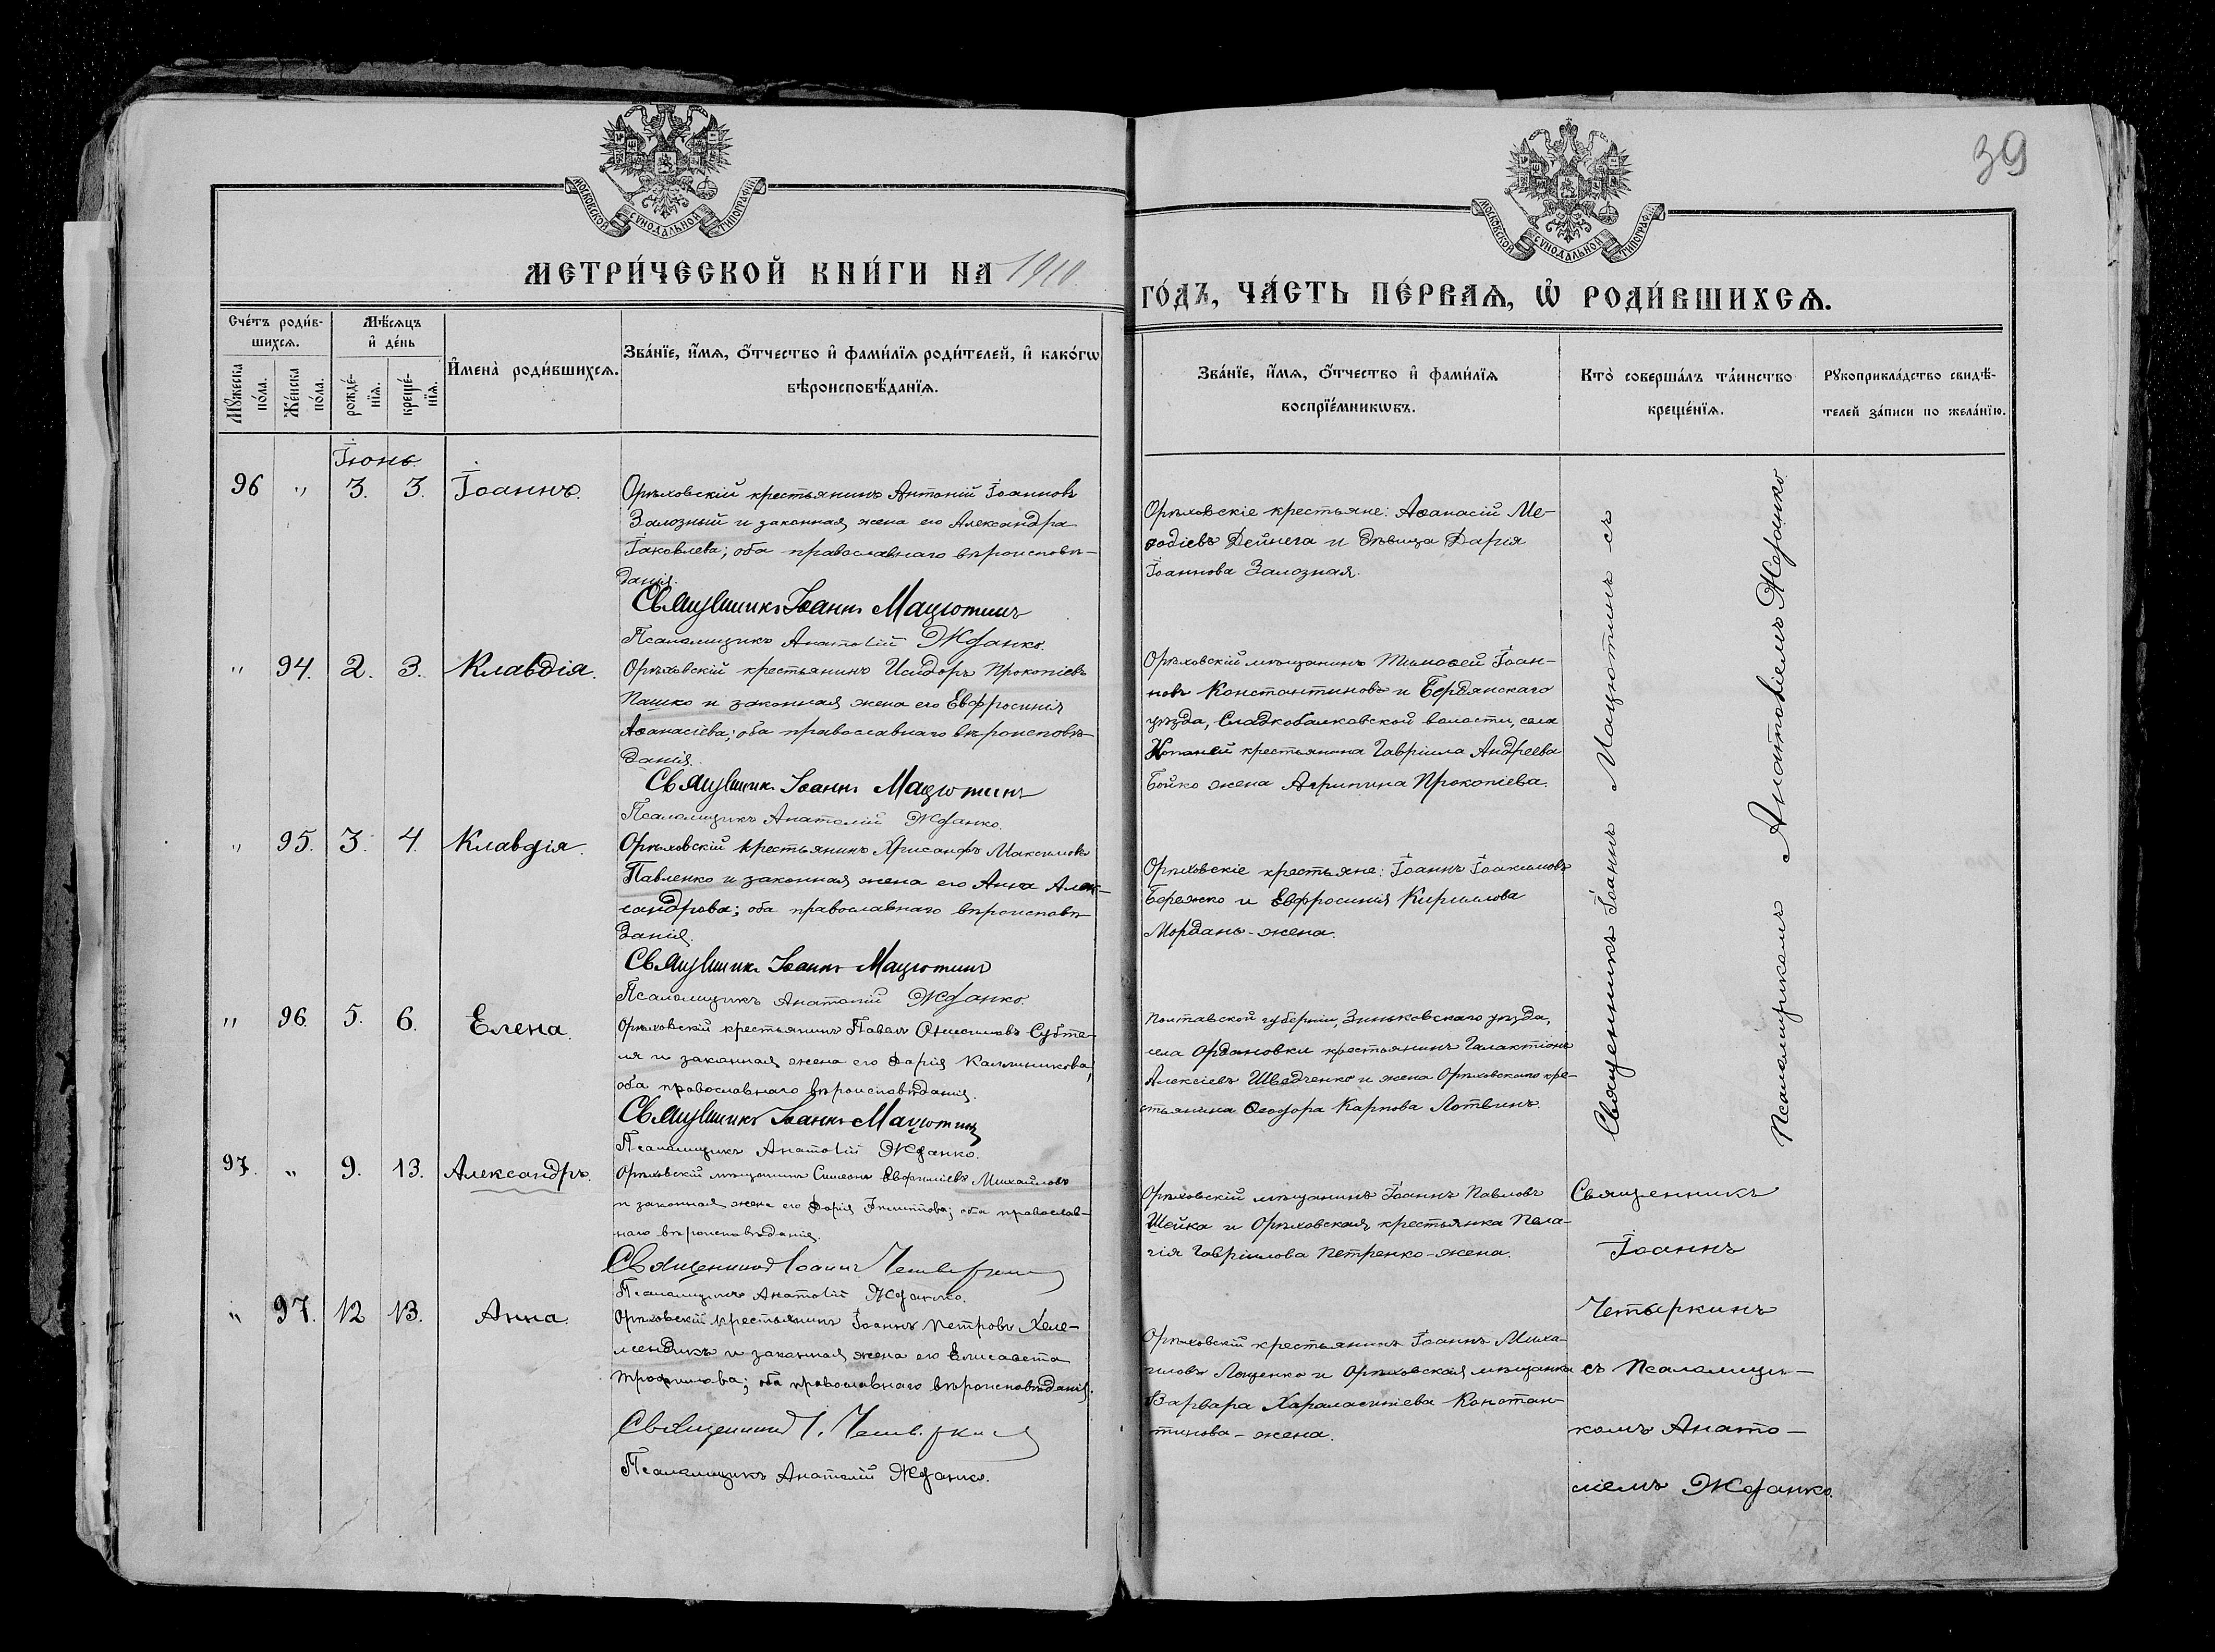 39
МОСКОВСКОЙ СѴНОДАЛЬНОЙ ТИПОГРАФІИ
МОСКОВСКОЙ СѴНОДАЛЬНОЙ ТИПОГРАФІИ
МЕТРИ́ЧЕСКОЙ КНИ́ГИ НА 1910
ГО́ДЪ, ЧА́СТЬ ПЕ́РВАѦ, Ѡ҆ РОДИ́ВШИХСѦ.
Сче́тъ роди́в-
шихсѧ.
Мꙋ́жеска по́ла.
Же́нска по́ла.
Мѣ́сѧцъ
и҆ де́нь
рожде́-
нїѧ.
креще́-
нїѧ.
И҆мена̀ роди́вшихсѧ.
Зва́нїе, и҆́мѧ, ѻ҆́тчество и҆ фами́лїѧ роди́телей, и҆ како́гѡ
вѣроисповѣ́данїѧ.
Зва́нїе, и҆́мѧ, ѻ҆́тчество и҆ фами́лїѧ
воспрїе́мникѡвъ.
Кто̀ соверша́лъ та́инство
креще́нїѧ.
Рꙋкоприкла́дство свидѣ́-
телей за́писи по жела́нїю.
Іюнь.
96 " 3. 3. Іоаннъ.
Орѣховскій крестьянинъ Антоній Іоанновъ
Залозный и законная жена его Александра
Іаковлева; оба православнаго вѣроисповѣ-
данія.
Священникъ Іоаннъ Мацютинъ
Псаломщикъ Анатолій Жданко.
Орѣховскіе крестьяне: Аѳанасій Ме-
ѳодіевъ Дейнега и дѣвица Дарія
Іоаннова Залозная.
" 94. 2. 3. Клавдія.
Орѣховскій крестьянинъ Исидоръ Прокопіевъ
Пашко и законная жена его Евфросинія
Аѳанасіева; оба православнаго вѣроисповѣ-
данія.
Священникъ Іоаннъ Мацютинъ
Псаломщикъ Анатолій Жданко.
Орѣховскій мѣщанинъ Тимоѳей Іоан-
новъ Константиновъ и Бердянскаго
уѣзда, Сладкобалковской волости, села
Копаней крестьянина Гавріила Андреева
Бойко жена Агрипина Прокопіева.
" 95. 3. 4. Клавдія.
Орѣховскій крестьянинъ Хрисанфъ Максимовъ
Павленко и законная жена его Анна Алек-
сандрова; оба православнаго вѣроисповѣ-
данія.
Священникъ Іоаннъ Мацютинъ
Псаломщикъ Анатолій Жданко.
Орѣховскіе крестьяне: Іоаннъ Іоакимовъ
Бережко и Евфросинія Кириллова
Мордань-жена.
" 96. 5. 6. Елена.
Орѣховскій крестьянинъ Павелъ Онисимовъ Субте-
ля и законная жена его Дарія Каллиникова;
оба православнаго вѣроисповѣданія.
Священникъ Іоаннъ Мацютинъ
Псаломщикъ Анатолій Жданко.
Полтавской губерніи, Зиньковскаго уѣзда,
села Ордановки крестьянинъ Галактіонъ
Алексіевъ Шведченко и жена Орѣховскаго кре-
стьянина Ѳеодора Карпова Лотвинъ.
Священникъ Іоаннъ Мацютинъ съ
Псаломщикомъ Анатоліемъ Жданко.
97. " 9. 13. Александръ.
Орѣховскій мѣщанинъ Симеонъ Евфиміевъ Михайловъ
и законная жена его Дарія Филиппова; оба православ-
наго вѣроисповѣданія.
Священникъ Іоаннъ Четыркинъ
Псаломщикъ Анатолій Жданко.
Орѣховскій мѣщанинъ Іоаннъ Павловъ
Шейка и Орѣховская крестьянка Пела-
гія Гавріилова Петренко-жена.
" 97. 12 13. Анна.
Орѣховскій крестьянинъ Іоаннъ Петровъ Хеле-
мендикъ и законная жена его Елисавета
Трофимова; оба православнаго вѣроисповѣданія.
Священникъ І. Четыркинъ
Псаломщикъ Анатолій Жданко.
Орѣховскій крестьянинъ Іоаннъ Миха-
иловъ Лященко и Орѣховская мѣщанка
Варвара Харалампіева Констан-
тинова-жена.
Священникъ
Іоаннъ
Четыркинъ
съ Псаломщи-
комъ Анато-
ліемъ Жданко.